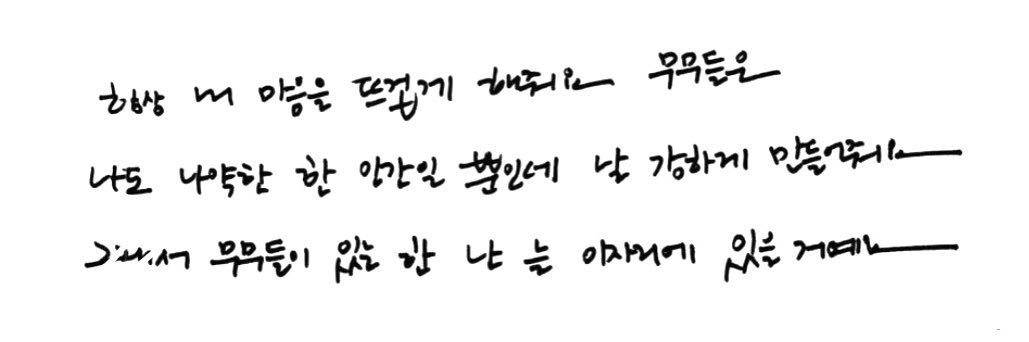 항상 내 마음을 뜨겁게 해줘요 무무들은
나도 나약한 한 인간일 뿐인데 날 강하게 만들어줘요
그래서 무무들이 있는 한 난 늘 이자리에 있을 거예요